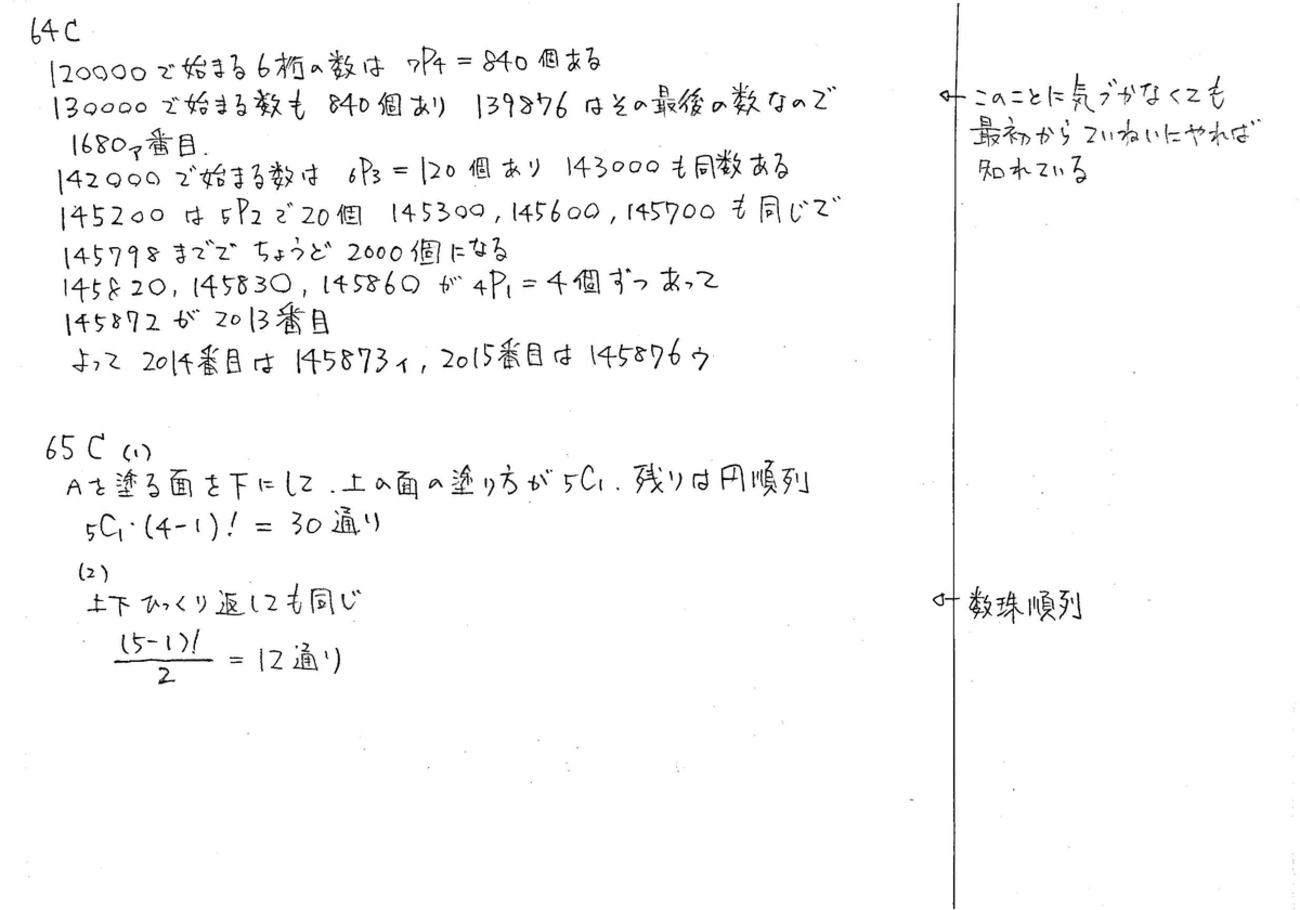 64C
12○○○○で始まる6桁の数は ₇P₄ = 840個ある
13○○○○で始まる数も 840個あり 139876 はその最後の数なので
1680ア番目.
142○○○で始まる数は ₆P₃ = 120個あり 143○○○も同数ある
1452○○は ₅P₂で20個 1453○○, 1456○○, 1457○○も同じで
145798までで ちょうど 2000個になる
14582○, 14583○, 14586○ が ₄P₁ = 4個ずつあって
145872が 2013番目
よって 2014番目は 145873イ, 2015番目は 145876ウ
←このことに気づかなくても
最初からていねいにやれば
知れている
65C (1)
Aを塗る面を下にして. 上の面の塗り方が ₅C₁. 残りは円順列
₅C₁・(4-1)! = 30通り
(2)
上下ひっくり返しても同じ
(5-1)!/2 = 12通り
←数珠順列